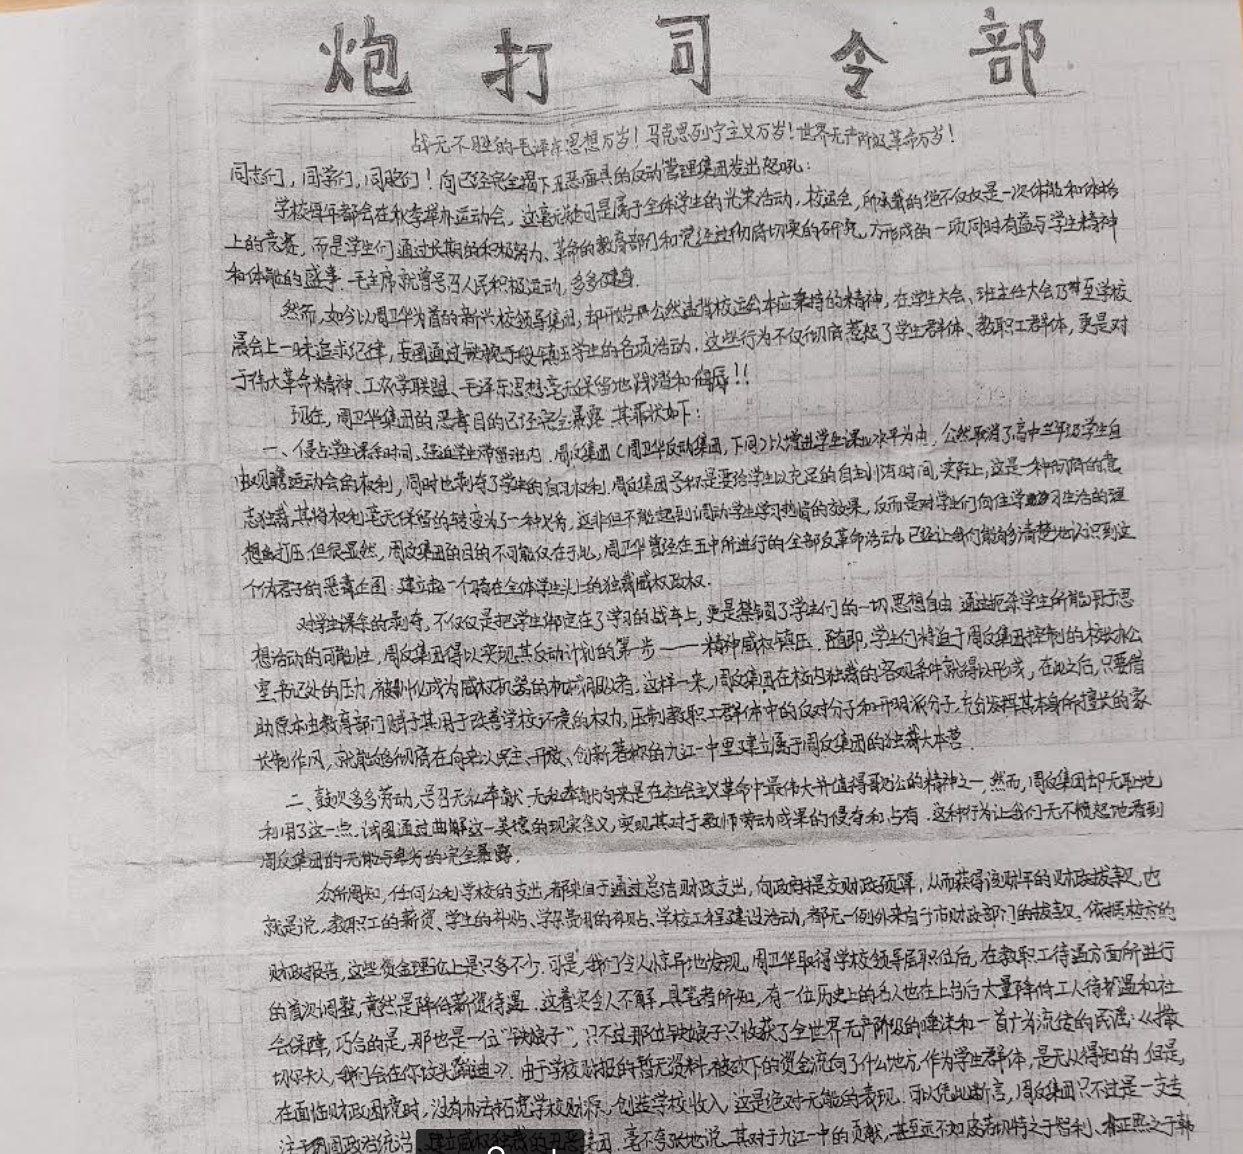 炮打司令部
战无不胜的毛泽东思想万岁！马克思列宁主义万岁！世界无产阶级革命万岁！
同志们，同学们，同胞们！向已经完全揭下丑恶面具的反动管理集团发出怒吼：
学校每年都会在秋季举办运动会，这毫无疑问是属于全体学生的光荣活动，校运会，所承载的绝不仅仅是一次体能和体格
上的竞赛，而是学生们通过长期的积极努力、革命的教育部们和党经过彻底切实的研究，方形成的一项同时有益与学生精神
和体能的盛事。毛主席就曾号召人民积极运动，多多健身。
然而，如今以周卫华为首的新兴校领导集团，却开始公然违背校运会本应秉持的精神，在学生大会、班主任大会乃至学校
晨会上一味追求纪律，妄图通过铁腕手段镇压学生的各项活动。这些行为不仅彻底惹怒了学生群体、教职工群体，更是对
于伟大革命精神、工农学联盟、毛泽东思想毫无保留地践踏和侮辱！！
现在，周卫华集团的恶毒目的已经完全暴露，其罪状如下：
一、侵占学生课余时间，强迫学生滞留班内。周反集团（周卫华反动集团，下同）以增进学生课业水平为由，公然取消了高中三年级学生自
由观瞻运动会的权利，同时也剥夺了学生的自习权利。周反集团予称是要给学生以充足的自主训练时间，实际上，这是一种彻底的意
志独裁，其将权利毫无保留的转变为了一种义务，这非但不能起到调动学生学习热情的效果，反而是对学生们向往学习生活的理
想的打压。但很显然，周反集团的目的不可能仅在于此，周卫华曾经在五中所进行的全部反革命活动，已经让我们能够清楚地认识到这
个伪君子的恶毒企图：建立起一个骑在全体学生头上的独裁威权政权。
对学生课余的剥夺，不仅仅是把学生绑定在了学习的战车上，更是禁锢了学生们的一切思想自由。通过扼杀学生所能用于思
想活动的可能性，周反集团得以实现其反动计划的第一步——精神威权镇压。随即，学生们将迫于周反集团控制的校办公
室、书记处的压力，被驯化成为威权机器的机械服从者。这样一来，周反集团在校内独裁的客观条件就得以形成，在此之后，只要借
助原本由教育部门赋予其用于改善学校环境的权力，压制教职工群体中的反对分子和开明派分子，充分发挥其本身所擅长的家
长制作风，就能够彻底在向来以民主、开放、创新著称的九江一中里建立属于周反集团的独裁大本营。
二、鼓吹多多劳动，号召无私奉献。无私奉献向来是在社会主义革命中最伟大并值得歌讼的精神之一，然而，周反集团却无耻地
利用了这一点，试图通过曲解这一美德的现实含义，实现其对于教师劳动成果的侵吞和占有。这种行为让我们无不愤怒地看到
周反集团的无能与卑劣的完全暴露。
众所周知，任何公利学校的支出，都来自于通过总结财政支出，向政府提交财政预算，从而获得该财年的财政拨款，也
就是说，教职工的薪资、学生的补贴、学杂费用的补贴、学校工程建设活动，都无一例外来自于市财政部门的拨款。依据校方的
财政报告，这些资金理论上是只多不少。可是，我们令人惊异地发现，周卫华取得学校领导层职位后，在教职工待遇方面所进行
的首次调整，竟然是降低薪资待遇。这着实令人不解，具笔者所知，有一位历史上的名人也在上台后大量降低工人待遇和社
会保障，巧合的是，那也是一位“铁娘子”，只不过那位铁娘子只收获了全世界无产阶级的唾沫和一首广为流传的民谣：《撒
切尔夫人，我们会在你坟头蹦迪》。由于学校财报的暂无资料，被砍下的资金流向了什么地方，作为学生群体，是无从得知的，但是，
在面临财政困境时，没有办法拓宽学校财源，创造学校收入，这是绝对无能的表现。可以凭此断言，周反集团只不过是一支专
注于巩固政治统治、建立威权独裁的丑恶集团。毫不夸张地说，其对于九江一中的贡献，甚至远不如皮诺切特之于智利、朴正熙之于韩